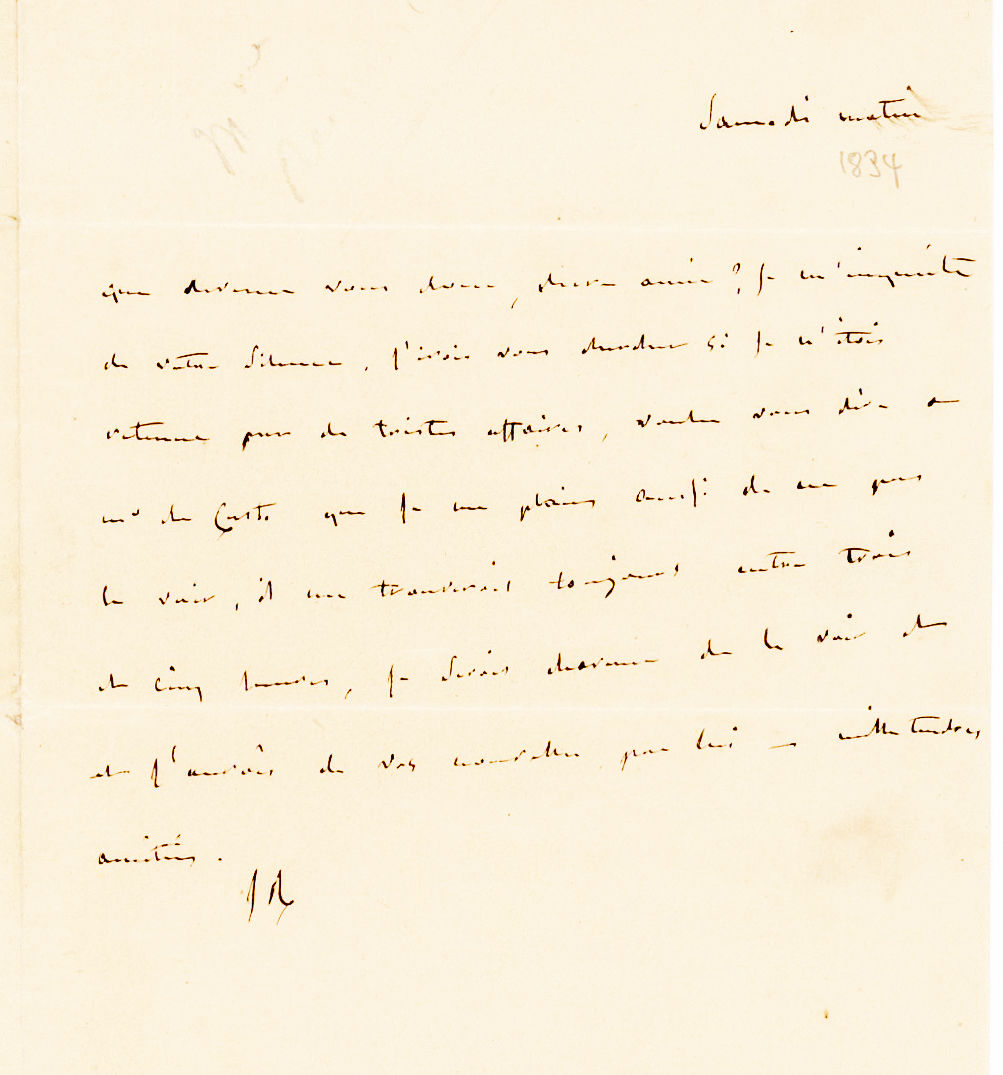 Samedi matin
1834
que devenez vous donc, chere amie ? Je m'inquiéte
de votre Silence, j'irois vous chercher si Je n'étois
retenue par de tristes affaires, voulez vous dire a
mr de que Je me plains aussi de ne pas
le voir, il me trouveroit toujours entre trois
et cinq heures, Je Serois charmée de le voir et
et J'aurois de vos nouvelles par lui — mille tendres
amitiés .
JR